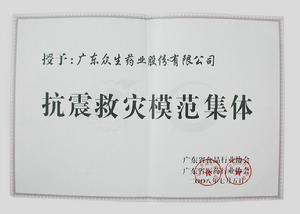 授予：广东众生药业股份有限公司
抗震救灾模范集体
广东省食品行业协会
广东省医药行业协会
二〇〇八年七月五日